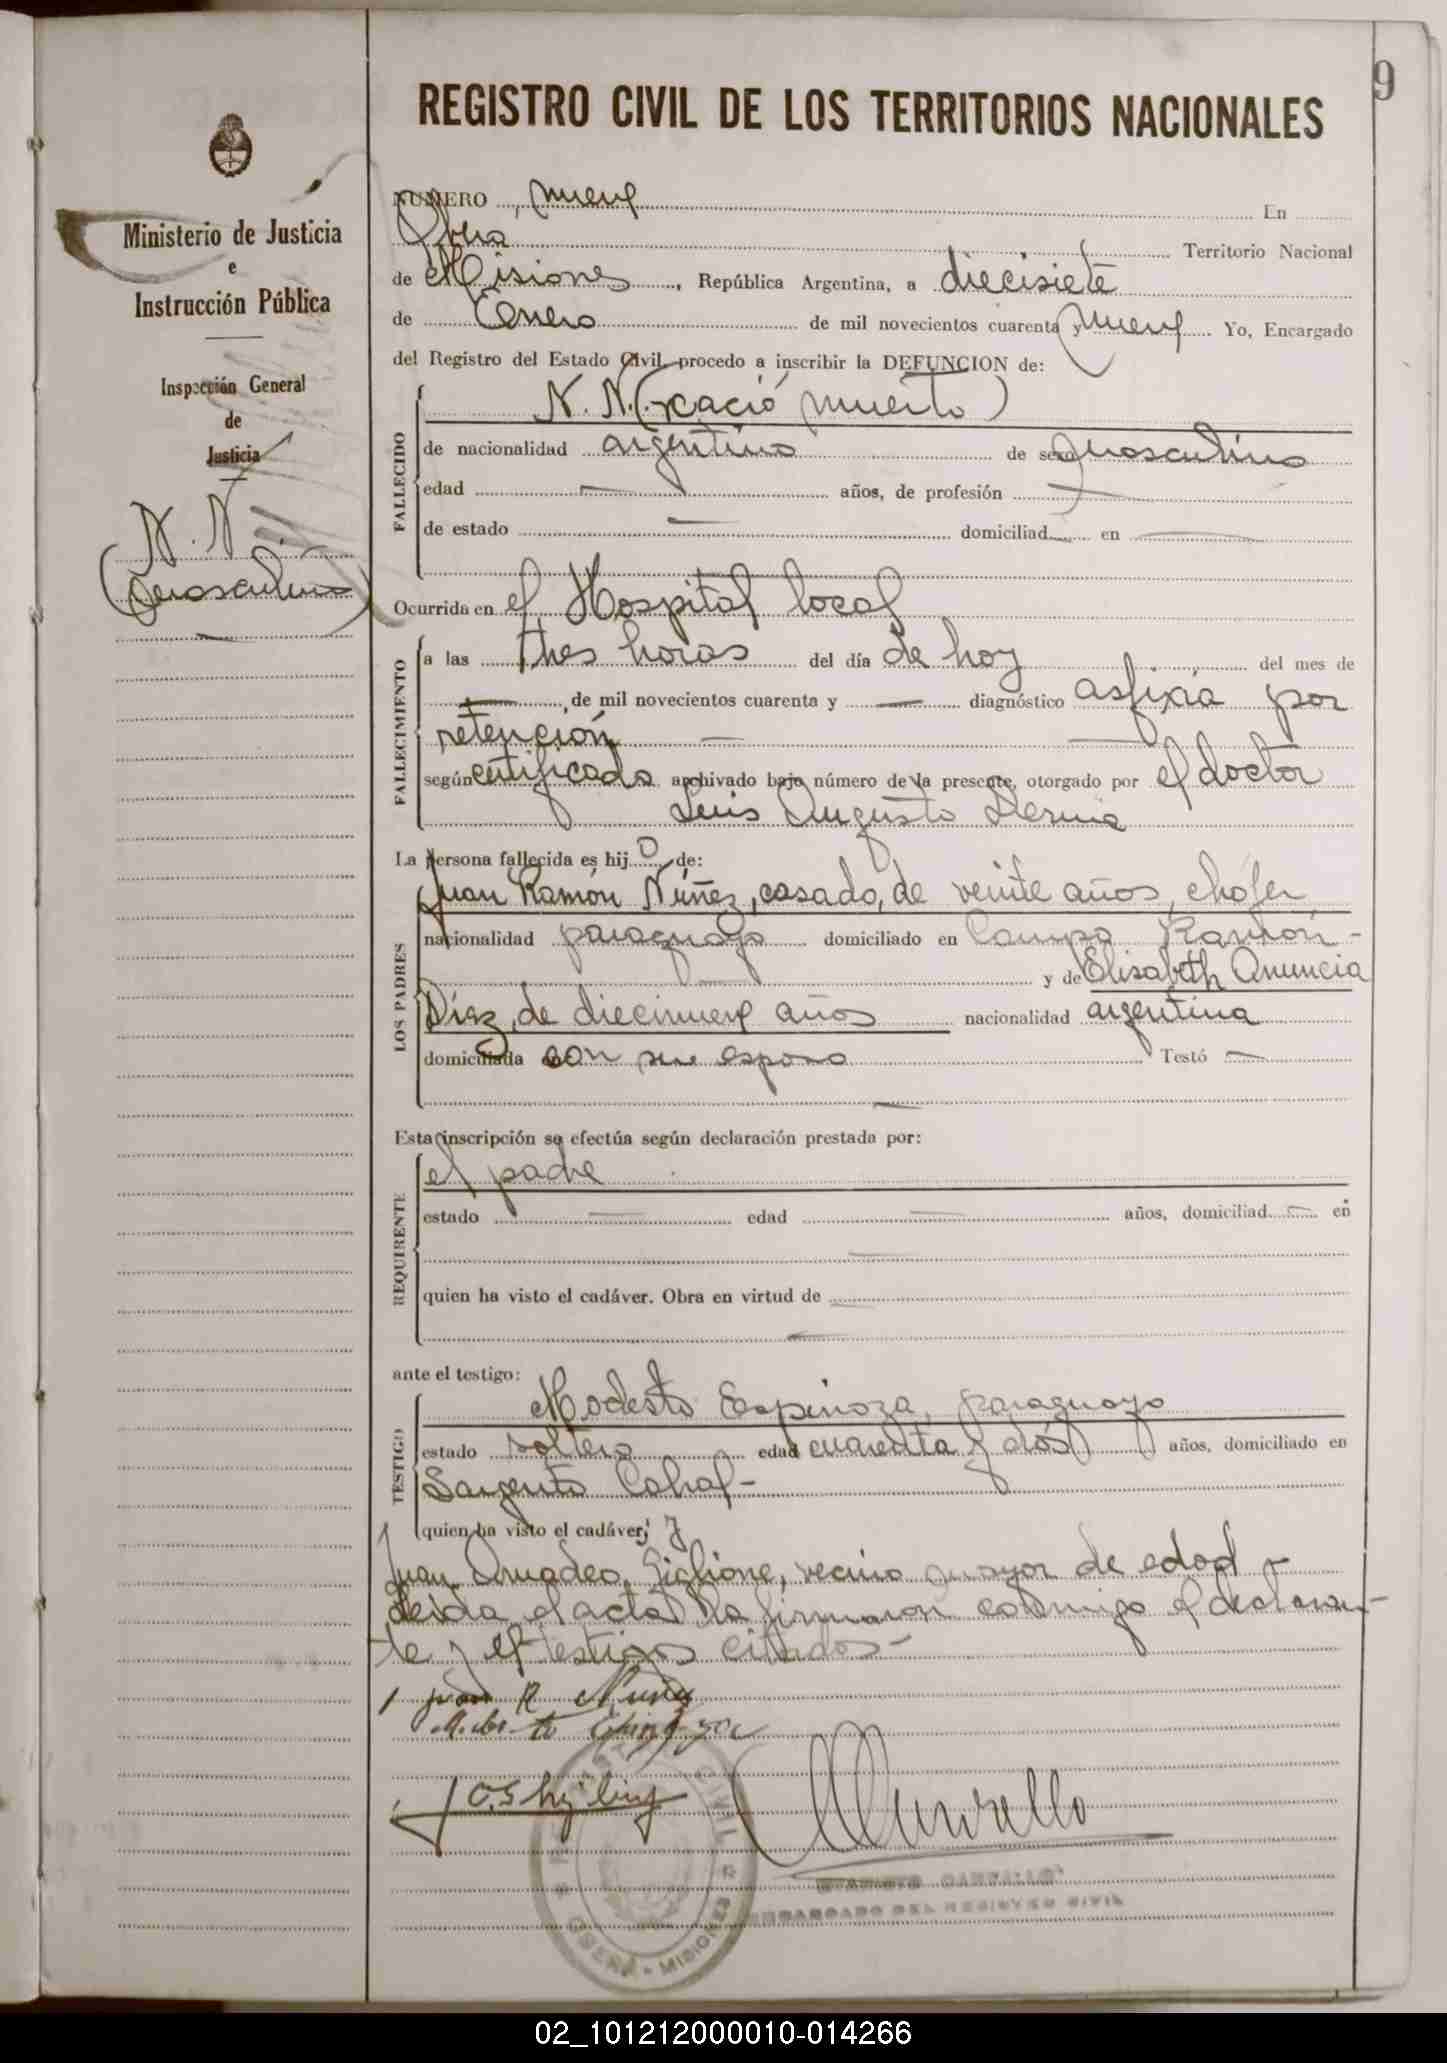 9
REGISTRO CIVIL DE LOS TERRITORIOS NACIONALES
Ministerio de Justicia
e
Instrucción Pública
Inspección General
de
Justicia
N. N.
(masculino)
NUMERO nueve En
Oberá Territorio Nacional
de Misiones, República Argentina, a diecisiete
de Enero de mil novecientos cuarenta y nueve Yo, Encargado
del Registro del Estado Civil, procedo a inscribir la DEFUNCION de:
FALLECIDO
N. N. (nació muerto)
de nacionalidad argentino de sexo masculino
edad — años, de profesión —
de estado — domiciliad en —
Ocurrida en el Hospital local
FALLECIMIENTO
a las tres horas del día de hoy del mes de
—, de mil novecientos cuarenta y — diagnóstico asfixia por
retención — —
según certificado archivado bajo número de la presente, otorgado por el doctor
Luis Augusto
La persona fallecida es hijo de:
LOS PADRES
Juan Ramón Núñez, casado, de veinte años, chófer
nacionalidad paraguayo domiciliado en Campo Ramón -
— y de Elisabeth Anuncia
Díaz, de diecinueve años nacionalidad argentina
domiciliada con su esposo Testó —
—
Esta inscripción se efectúa según declaración prestada por:
REQUIRENTE
el padre
estado — edad — años, domiciliad — en
—
quien ha visto el cadáver. Obra en virtud de —
—
ante el testigo:
TESTIGO
Modesto Espinoza, paraguayo
estado soltero edad cuarenta y dós años, domiciliado en
Sargento Cabral -
quien ha visto el cadáver; y
Juan Amadeo, vecino mayor de edad -
Leida el acta la firmaron conmigo el declaran-
te y el testigos citados -
Juan R Nuñez
Espinoza
REGISTRO CIVIL
OBERÁ - MISIONES
CARVALLO
ENCARGADO DEL REGISTRO CIVIL
02_101212000010-014266